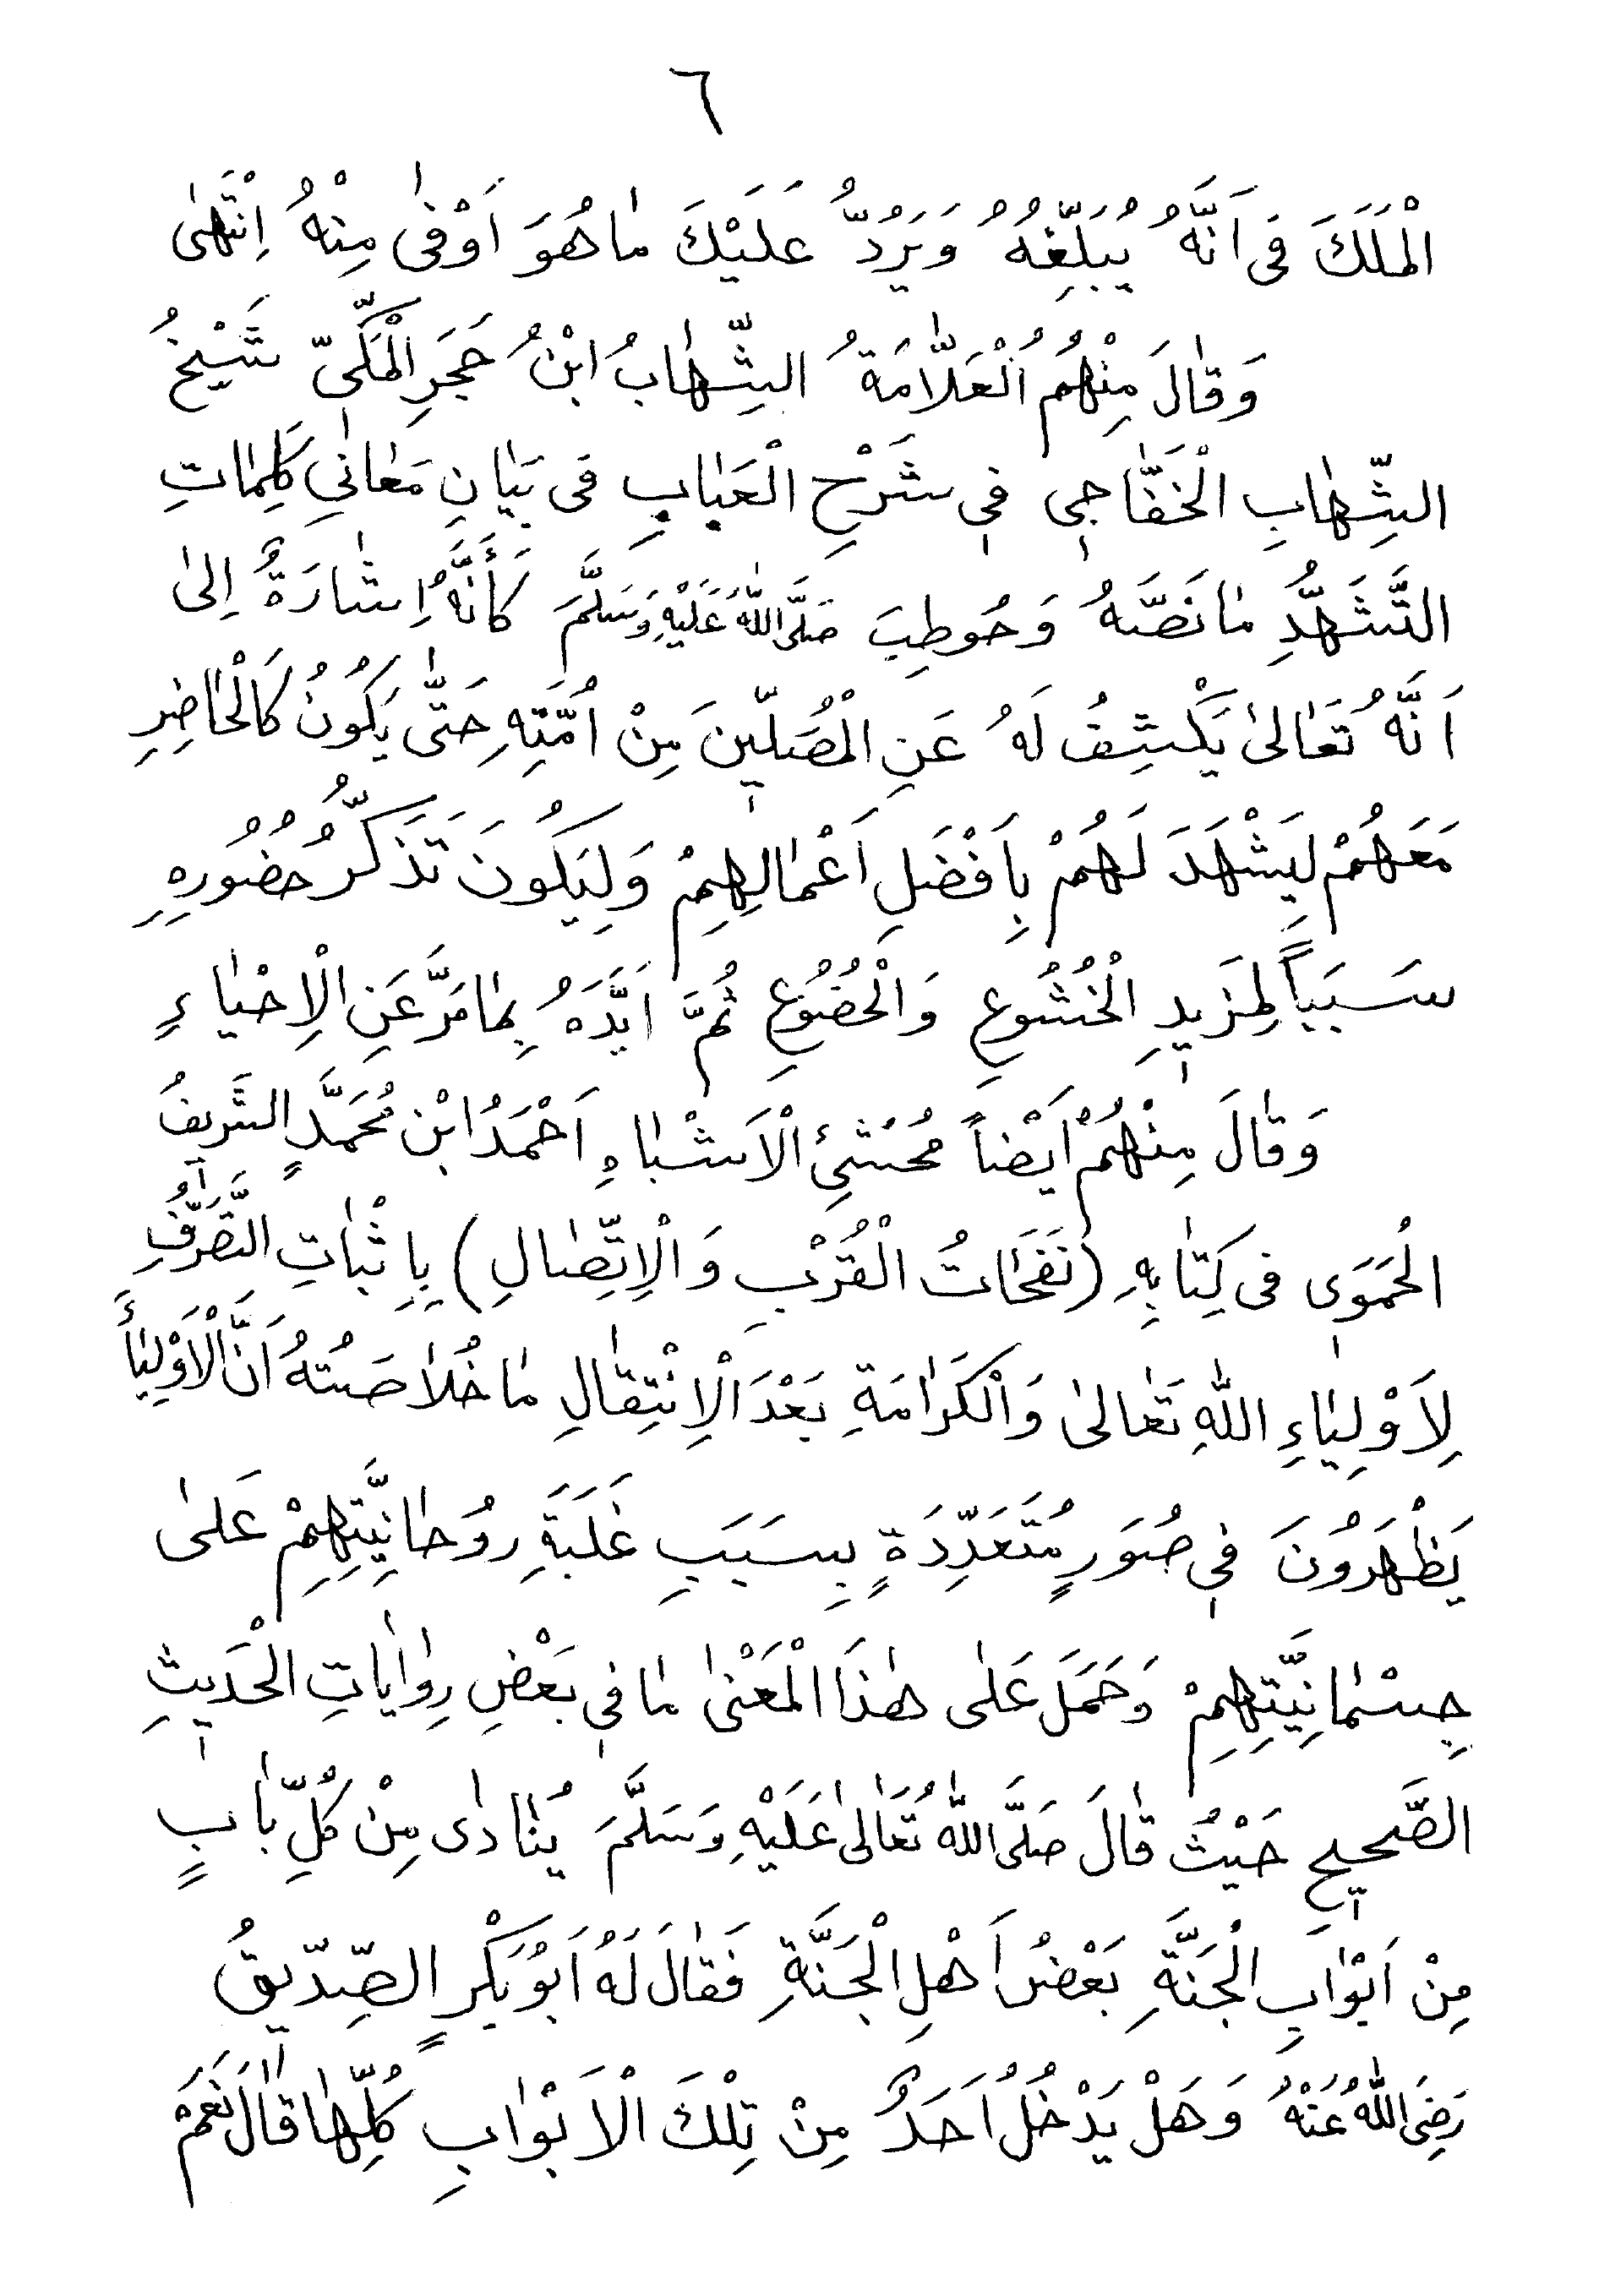 ٦
الْمَلَكَ فَى اَنَّهُ يُبَلِّغُهُ وَيَرُدُّ عَلَيْكَ مٰا هُوَ اَوْفٰى مِنْهُ اِنْتَهٰى
وَقٰالَ مِنْهُمُ الْعَلّٰامَةُ الشِّهٰابُ ابْنُ حَجَرِ الْمَكِّىّ شَيْخُ
الشِّهٰابِ الْخَفّٰاجِى فِى شَرْحِ الْعَبٰابِ فَى بَيٰانِ مَعٰانِي كَلِمٰاتِ
التَّشَهُّدِ مٰا نَصَّهُ وَخُوطِبَ صَلَّى اللّٰهُ عَلَيْهِ وَسَلَّمَ كَأَنَّهُ اِشٰارَةٌ اِلىٰ
اَنَّهُ تَعَالىٰ يَكْشِفُ لَهُ عَنِ الْمُصَلّينَ مِنْ اُمَّتِهِ حَتّٰى يَكُونُ كَالْحٰاضِرِ
مَعَهُمْ لِيَشْهَدَ لَهُمْ بِاَفْضَلِ اَعْمٰالِهِمْ وَلِيَكُونَ تَذَكُّرُ حُضُورِهِ
سَبَباً لِمَزيدِ الْخُشُوعِ وَالْخُضُوعِ ثُمَّ اَيَّدَهُ بِمٰا مَرَّ عَنِ الْاِحْيٰاءِ
وَقٰالَ مِنْهُمْ اَيْضاً مُحَشِّئُ الْاَشْبٰاهِ اَحْمَدُ ابْن مُحَمَّدٍ الشَّرِيفُ
الْحَمَوَى فى كِتٰابِهِ (نَفَحٰاتُ الْقُرْبِ وَالْاِتِّصٰالِ) بِاِثْبٰاتِ التَّصَرُّفِ
لِاَوْلِيٰاءِ اللّٰهِ تَعٰالىٰ وَالْكَرٰامَةِ بَعْدَ الْاِنْتِقٰالِ مٰا خُلٰاصَتُهُ اَنَّ الْاَوْلِيٰاءَ
يَظْهَرُونَ فِى صُوَرٍ مُتَعَدِّدَةٍ بِسَبَبِ غَلَبَةِ رُوحٰانِيَّتِهِمْ عَلىٰ
جِسْمٰانِيَّتِهِمْ وَحَمَلَ عَلٰى هٰذَا الْمَعْنٰى مٰا فِى بَعْضِ رِوٰايٰاتِ الْحَديثِ
الصَّحيحِ حَيْثُ قٰالَ صَلَّى اللّٰهُ تَعَالىٰ عَلَيْهِ وَسَلَّمَ يُنٰادٰى مِنْ كُلِّ بٰابٍ
مِنْ اَبْوٰابِ الْجَنَّةِ بَعْضُ اَهْلِ الْجَنَّةِ فَقٰالَ لَهُ اَبُو بَكْرٍ الصِّدّيقُ
رَضِىَ اللّٰهُ عَنْهُ وَهَلْ يَدْخُلُ اَحَدٌ مِنْ تِلْكَ الْاَبْوٰابِ كُلِّهٰا قٰالَ نَعَمْ